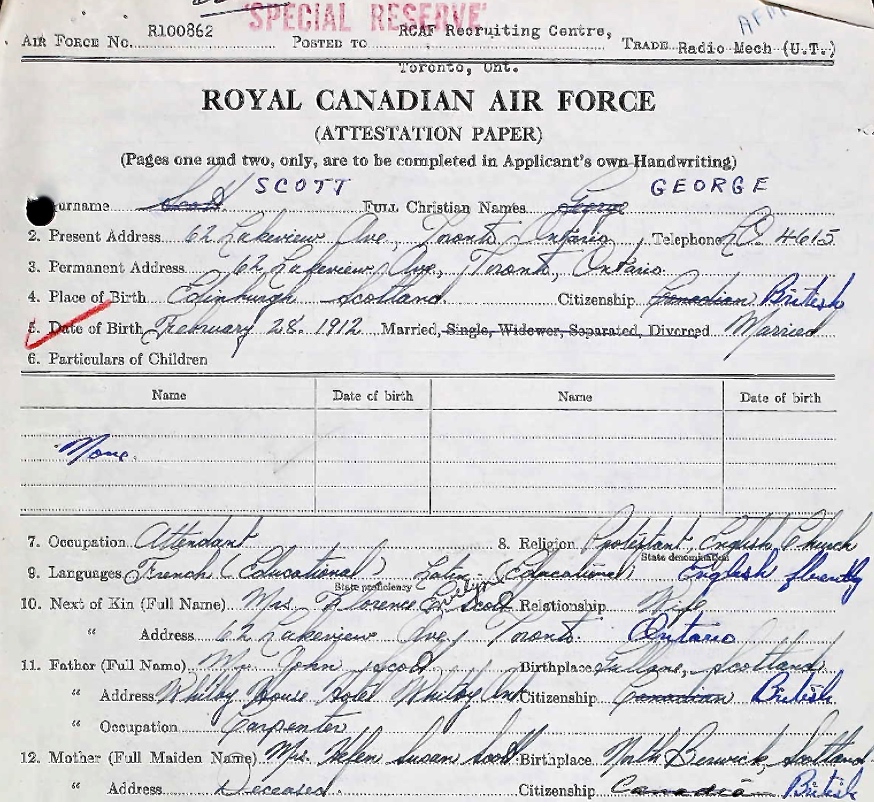 "SPECIAL RESERVE"
AFM
AIR FORCE No. R100862 POSTED TO RCAF Recruiting Centre, TRADE Radio Mech (U.T.)
Toronto, Ont.
ROYAL CANADIAN AIR FORCE
(ATTESTATION PAPER)
(Pages one and two, only, are to be completed in Applicant's own Handwriting)
SCOTT GEORGE
urname Scott FULL Christian Names George
2. Present Address 62 Lakeview Ave., Toronto Ontario Telephone 4615
3. Permanent Address 62 Lakeview Ave, Toronto, Ontario.
4. Place of Birth Edinburgh Scotland Citizenship Canadian British
5. Date of Birth February 28. 1912 Married, Single, Widower, Separated, Divorced Married
6. Particulars of Children
Name Date of birth Name Date of birth
None.
7. Occupation Attendant 8. Religion Protestant, English Church
State denomination
9. Languages French (Educational) Latin (Educational) English fluently
State proficiency
10. Next of Kin (Full Name) Mrs. Florence Evelyn Scott Relationship Wife
" Address 62 Lakeview Ave, Toronto. Ontario
11. Father (Full Name) Mr. John Scott Birthplace Gullane, Scotland
" Address Whitby House Hotel Whitby Ont Citizenship Canadian British
" Occupation Carpenter
12. Mother (Full Maiden Name) Mrs. Helen Susan Scott Birthplace North Berwick, Scotland
" Address Deceased. Citizenship Canadian British